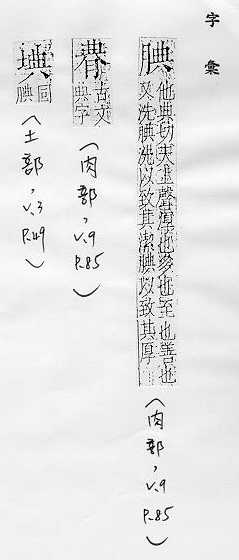 字彙
腆
他典切天上聲厚也多也至也善也
又洗腆洗以致其潔腆以致其厚
（肉部，v.9
P.85）
古文
典字
（肉部，v.9
P.85）
同
腆
（土部，v.3
P.49）